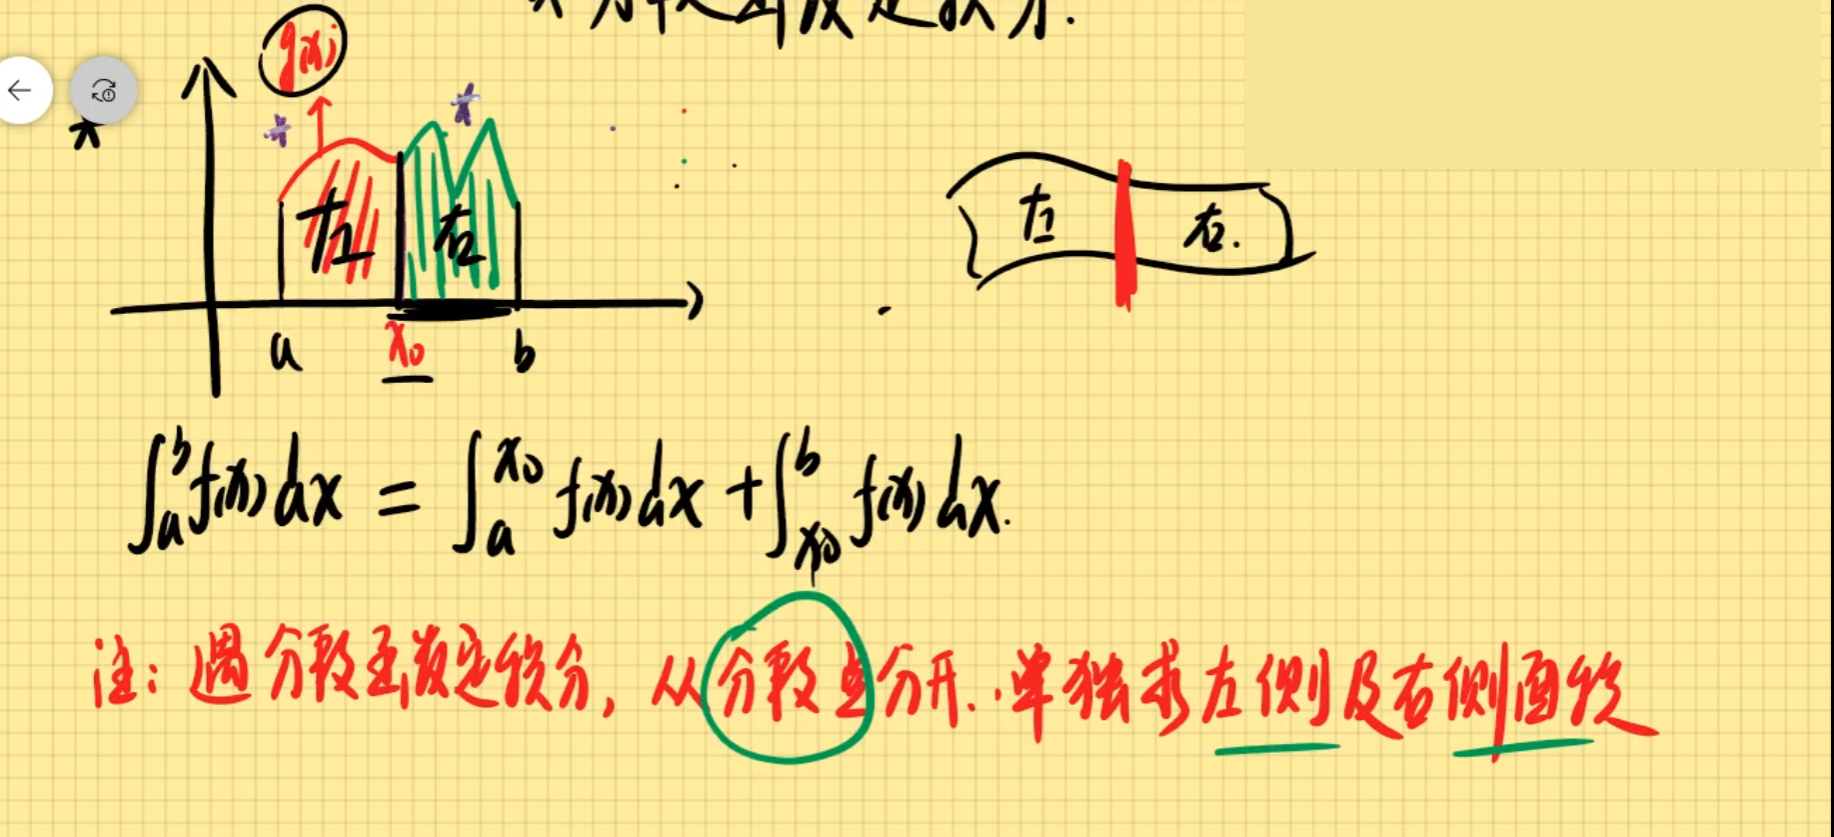 g(x)
左 右
左 右.
a x₀ b
∫ₐᵇ f(x)dx = ∫ₐˣ⁰ f(x)dx + ∫ₓ₀ᵇ f(x)dx.
注：遇分段函数定积分，从分段点分开.单独求左侧及右侧面积